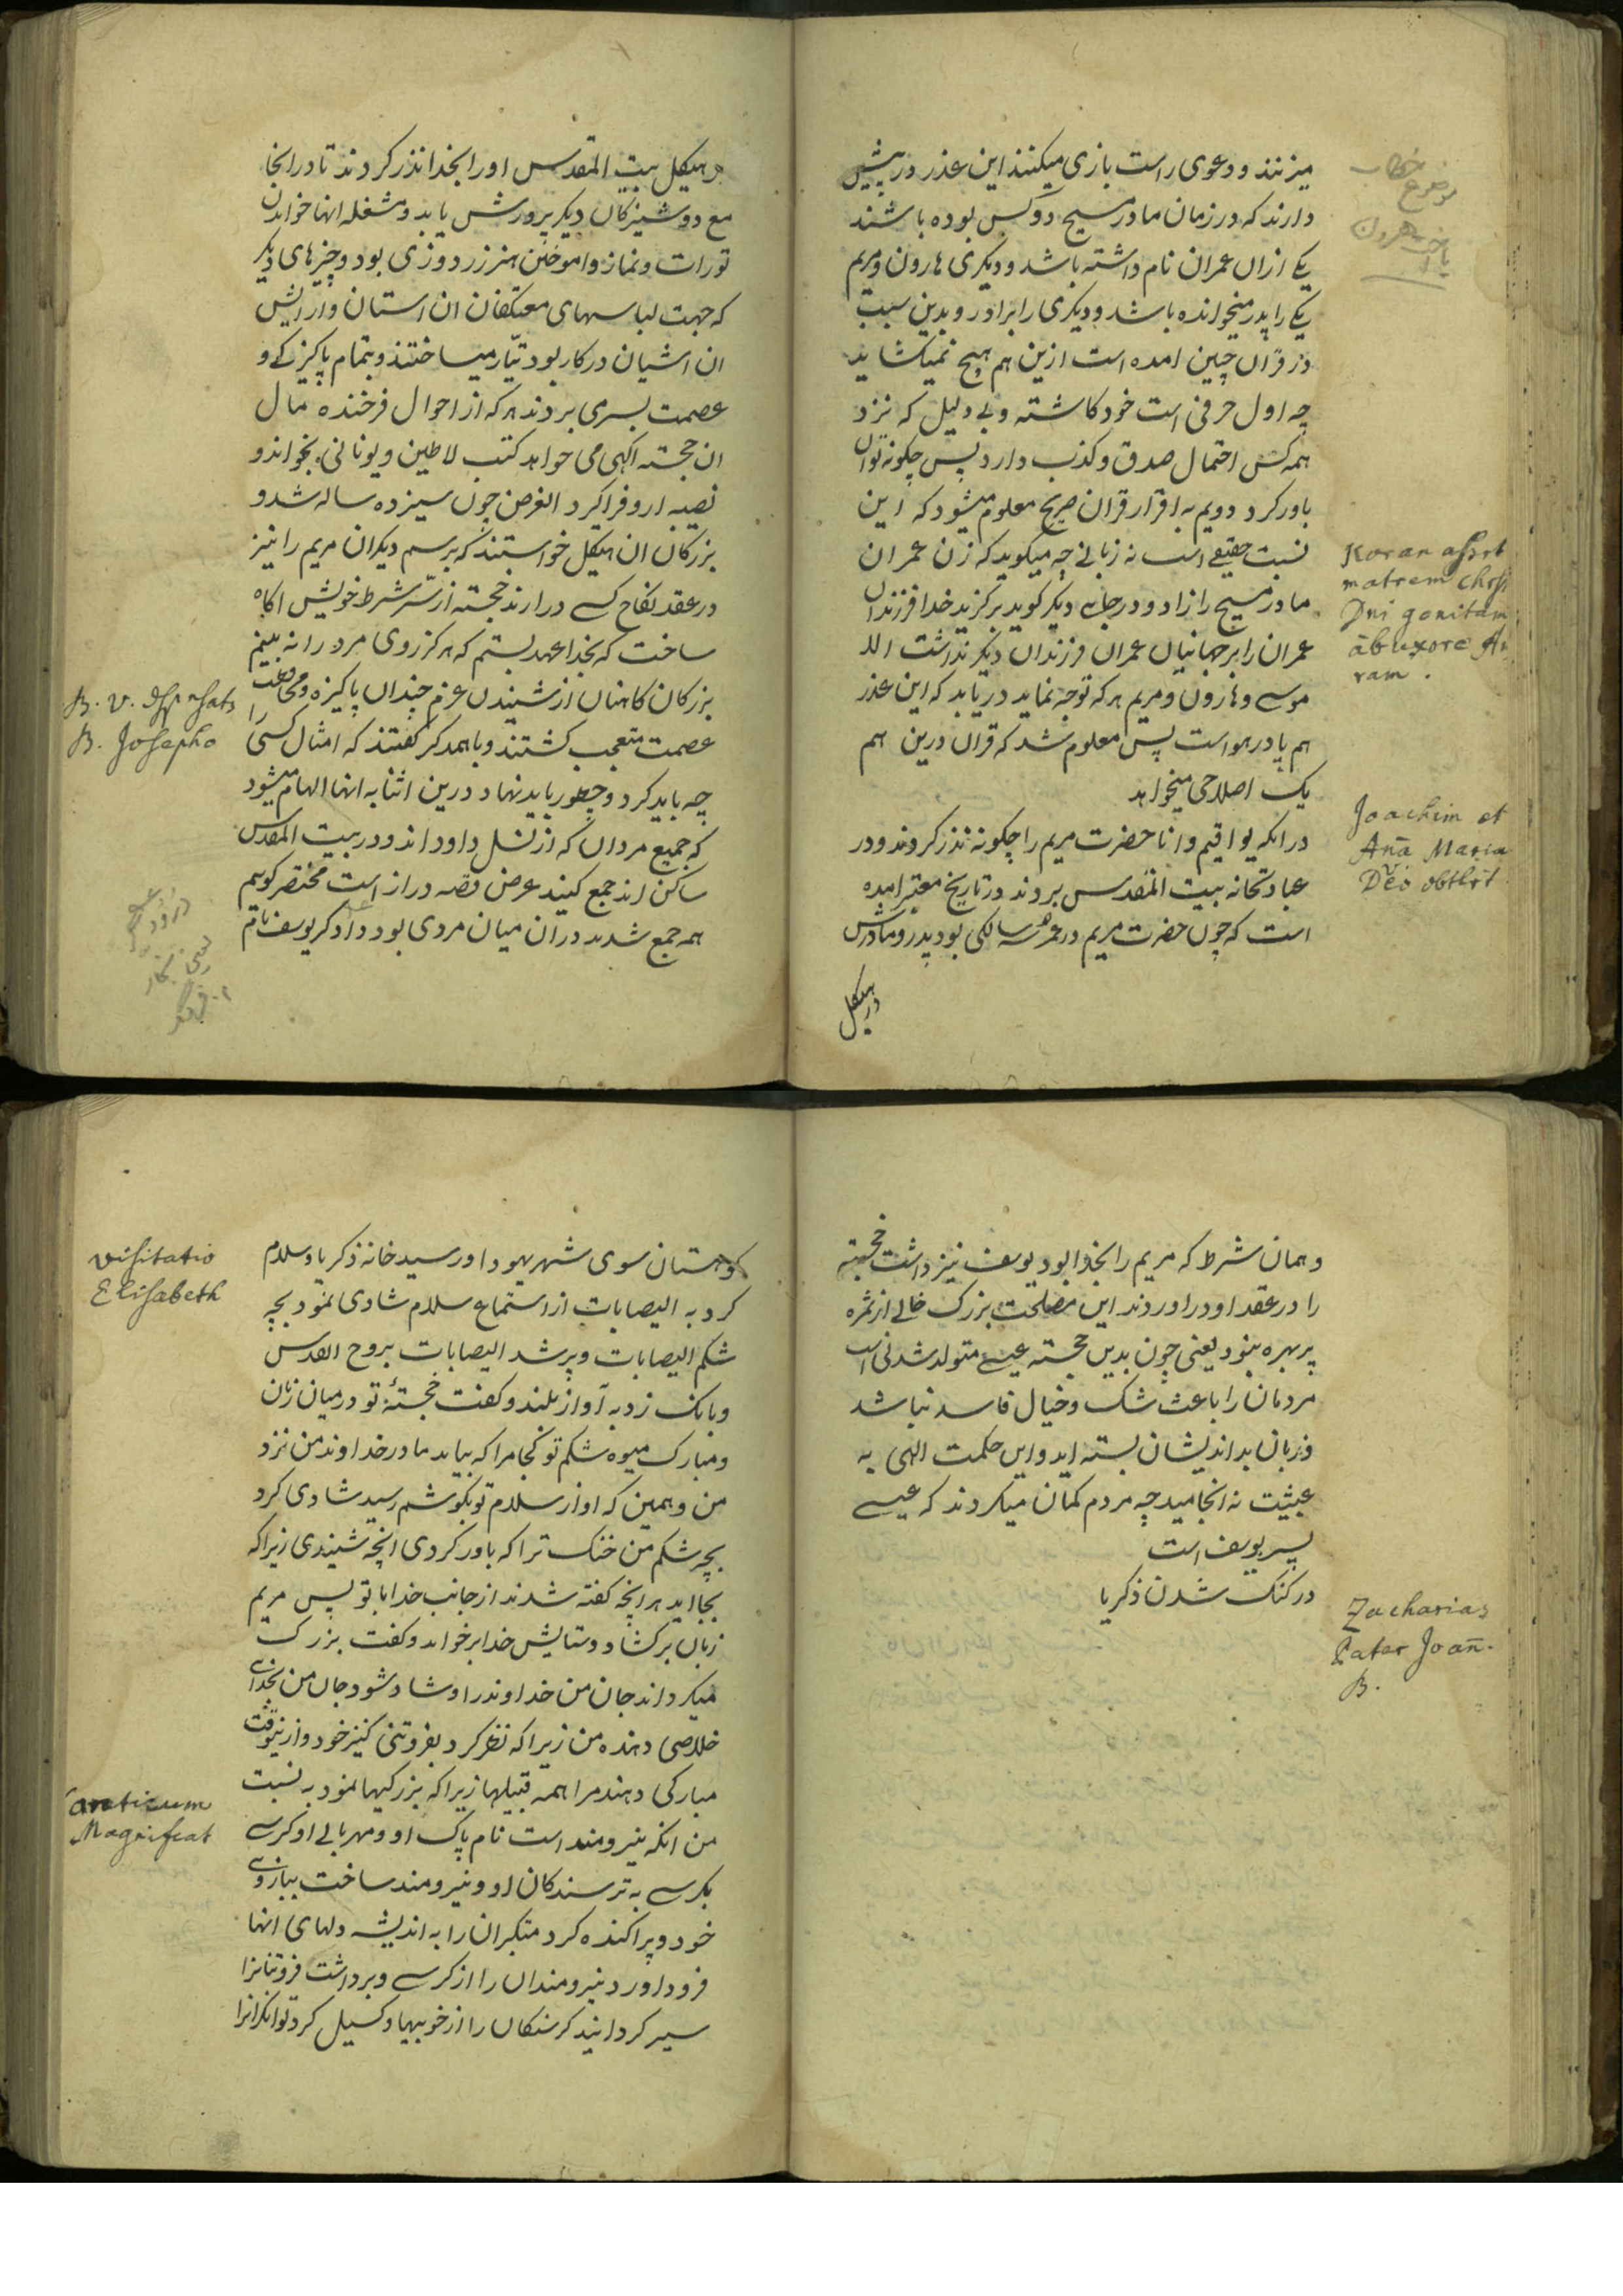 میزنند و دعوی راست بازی میکنند این عذر در پیش
دارند که در زمان مادر مسیح دو کس بوده باشند
یکی ازان عمران نام داشته باشد و دیگری هارون و مریم
یکی را پدر میخوانده باشد و دیگری را برادر و بدین سبب
در قران چنین امده است ازین هم هیچ نمیکشاید
چه اول حرفی است خود کاشته و بی دلیل که نزد
همه کس احتمال صدق و کذب دارد پس چکونه توان
باور کرد دویم به اقرار قران صریح معلوم میشود که این
نسبت حقیقی است نه زبانی چه میکوید که زن عمران
مادر مسیح را زاد و در جای دیکر کوید برکزید خدا فرزندان
عمران را بر جهانیان عمران فرزندان دیکر نداشت الا
موسی و هارون و مریم هر که توجه نماید دریابد که این عذر
هم پا در هواست پس معلوم شد که قران درین هم
یک اصلاحی میخواهد
در انکه یواقیم و انا حضرت مریم را چکونه نذر کردند و در
عبادتخانه بیت المقدس بردند در تاریخ معتبر امده
است که چون حضرت مریم در عمر سه سالکی بود پدر و مادرش
در هیکل
خطاب
هرون
Koran assrt
matrem Chrsti
Dni genitam
ab uxore
ram.
Joachim et
Aña Maria
Deo obtlrt
در هیکل بیت المقدس او را بخدا نذر کردند تا در انجا
مع دوشیزکان دیکر پرورش یابد و مشغله انها خواندن
تورات و نماز و اموختن هنر زردوزی بود و چیزهای دیکر
که جهت لباسهای معتکفان ان استان و ارایش
ان اشیان در کار بود تیار میساختند و بتمام پاکیزکی و
عصمت بسر می بردند هر که از احوال فرخنده مال
ان خجسته اکهی می خواهد کتب لاطین و یونانی بخواند و
نصیبه ازو فرا کیرد الغرض چون سیزده ساله شد و
بزرکان ان هیکل خواستند که برسم دیکران مریم را نیز
در عقد نکاح کسی درارند خجسته از سر شرط خویش اکاه
ساخت که بخدا عهد بستم که هرکز روی مرد را نه بینم
بزرکان کاهنان از شنیدن عزم چندان پاکیزه و محافظت
عصمت متعجب کشتند و باهمدکر کفتند که امثال کسی را
چه باید کرد و چطور باید نهاد درین اثنا به انها الهام میشود
که جمیع مردان که از نسل داود اند و در بیت المقدس
ساکن اند جمع کنید عرض قصه دراز است مختصر کویم
همه جمع شدند دران میان مردی بود دادکر یوسف نام
B. V. dsspnsats
B. Josepho
و همان شرط که مریم را بخدا بود یوسف نیز داشت خجسته
را در عقد او در اوردند این مصلحت بزرک خالی از ثمره
پر بهره بنود یعنی چون بدین خجسته عیسی متولد شدنی است
مردمان را باعث شک و خیال فاسد نباشد
و زبان بد اندیشان بسته اید و این حکمت الهی به
عبثیت نه انجامید چه مردم کمان میکردند که عیسی
پسر یوسف است
در کنک شدن ذکریا
Zacharias
Pater Joañ.
B.
کوهستان سوی شهر یهودا و رسید خانه ذکریا و سلام
کرد به الیصابات از استماع سلام شادی نمود بچه
شکم الیصابات و پر شد الیصابات بروح القدس
و بانک زد به آواز بلند و کفت خجستۀ تو در میان زنان
و مبارک میوه شکم تو کجا مرا که بیاید مادر خداوند من نزد
من و همین که اواز سلام تو بکوشم رسید شادی کرد
بچه شکم من خنک ترا که باور کردی انچه شنیدی زیرا که
بجا اید هر انچه کفته شدند از جانب خدا با تو پس مریم
زبان برکشاد و ستایش خدا برخواند و کفت بزرک
میکرداند جان من خداوند را و شاد شود جان من بخدای
خلاصی دهنده من زیرا که نظر کرد بفروتنی کنیز خود و ازینوقت
مبارکی دهند مرا همه قبیلها زیرا که بزرکیها نمود به نسبت
من انکه نیرومند است نام پاک او و مهربانی او کرسی
بکرسی به ترسندکان او و نیرومند ساخت ببازوی
خود و پراکنده کرد متکبران را به اندیشه دلهای انها
فرود اورد نیرومندان را از کرسی و برداشت فروتنانرا
سیر کردانید کرسنکان را از خوبیها و کسیل کرد توانکرانرا
visitatio
Elisabeth
Canticum
Magnificat